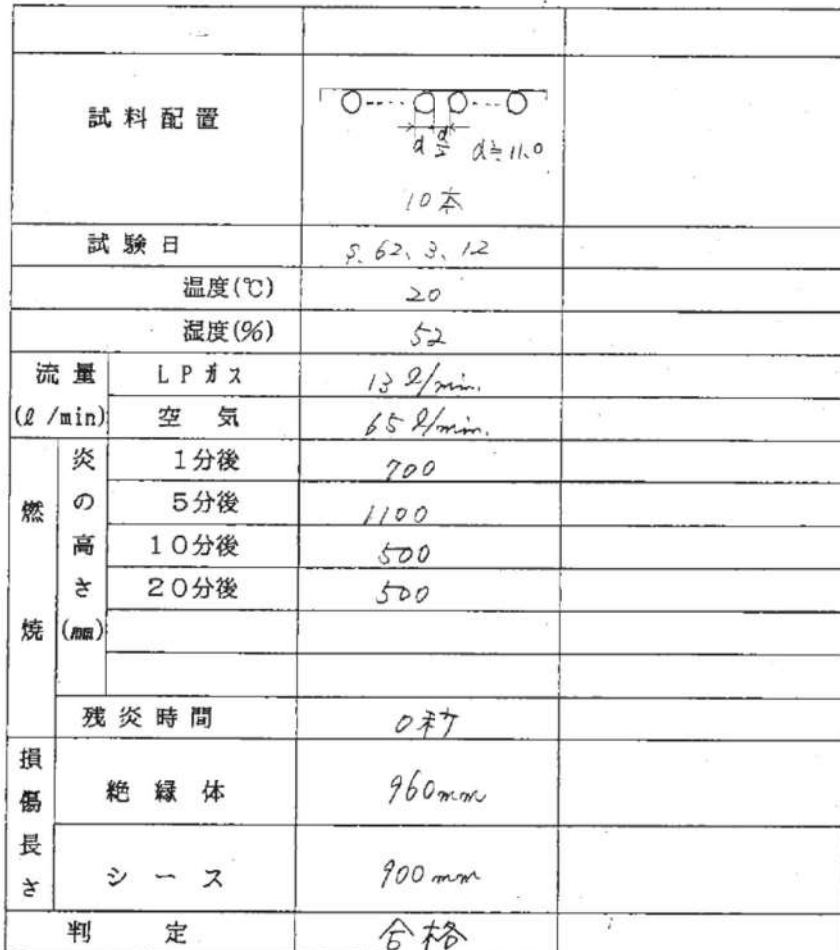 試料配置
d d/2 d≒11.0
10本
試験日 S. 62. 3. 12
温度(℃) 20
湿度(%) 52
流量 (ℓ/min) LPガス 13 ℓ/min.
空気 65 ℓ/min.
燃焼 炎の高さ(mm) 1分後 700
5分後 1100
10分後 500
20分後 500
残炎時間 0秒
損傷長さ 絶縁体 960mm
シース 900mm
判定 合格